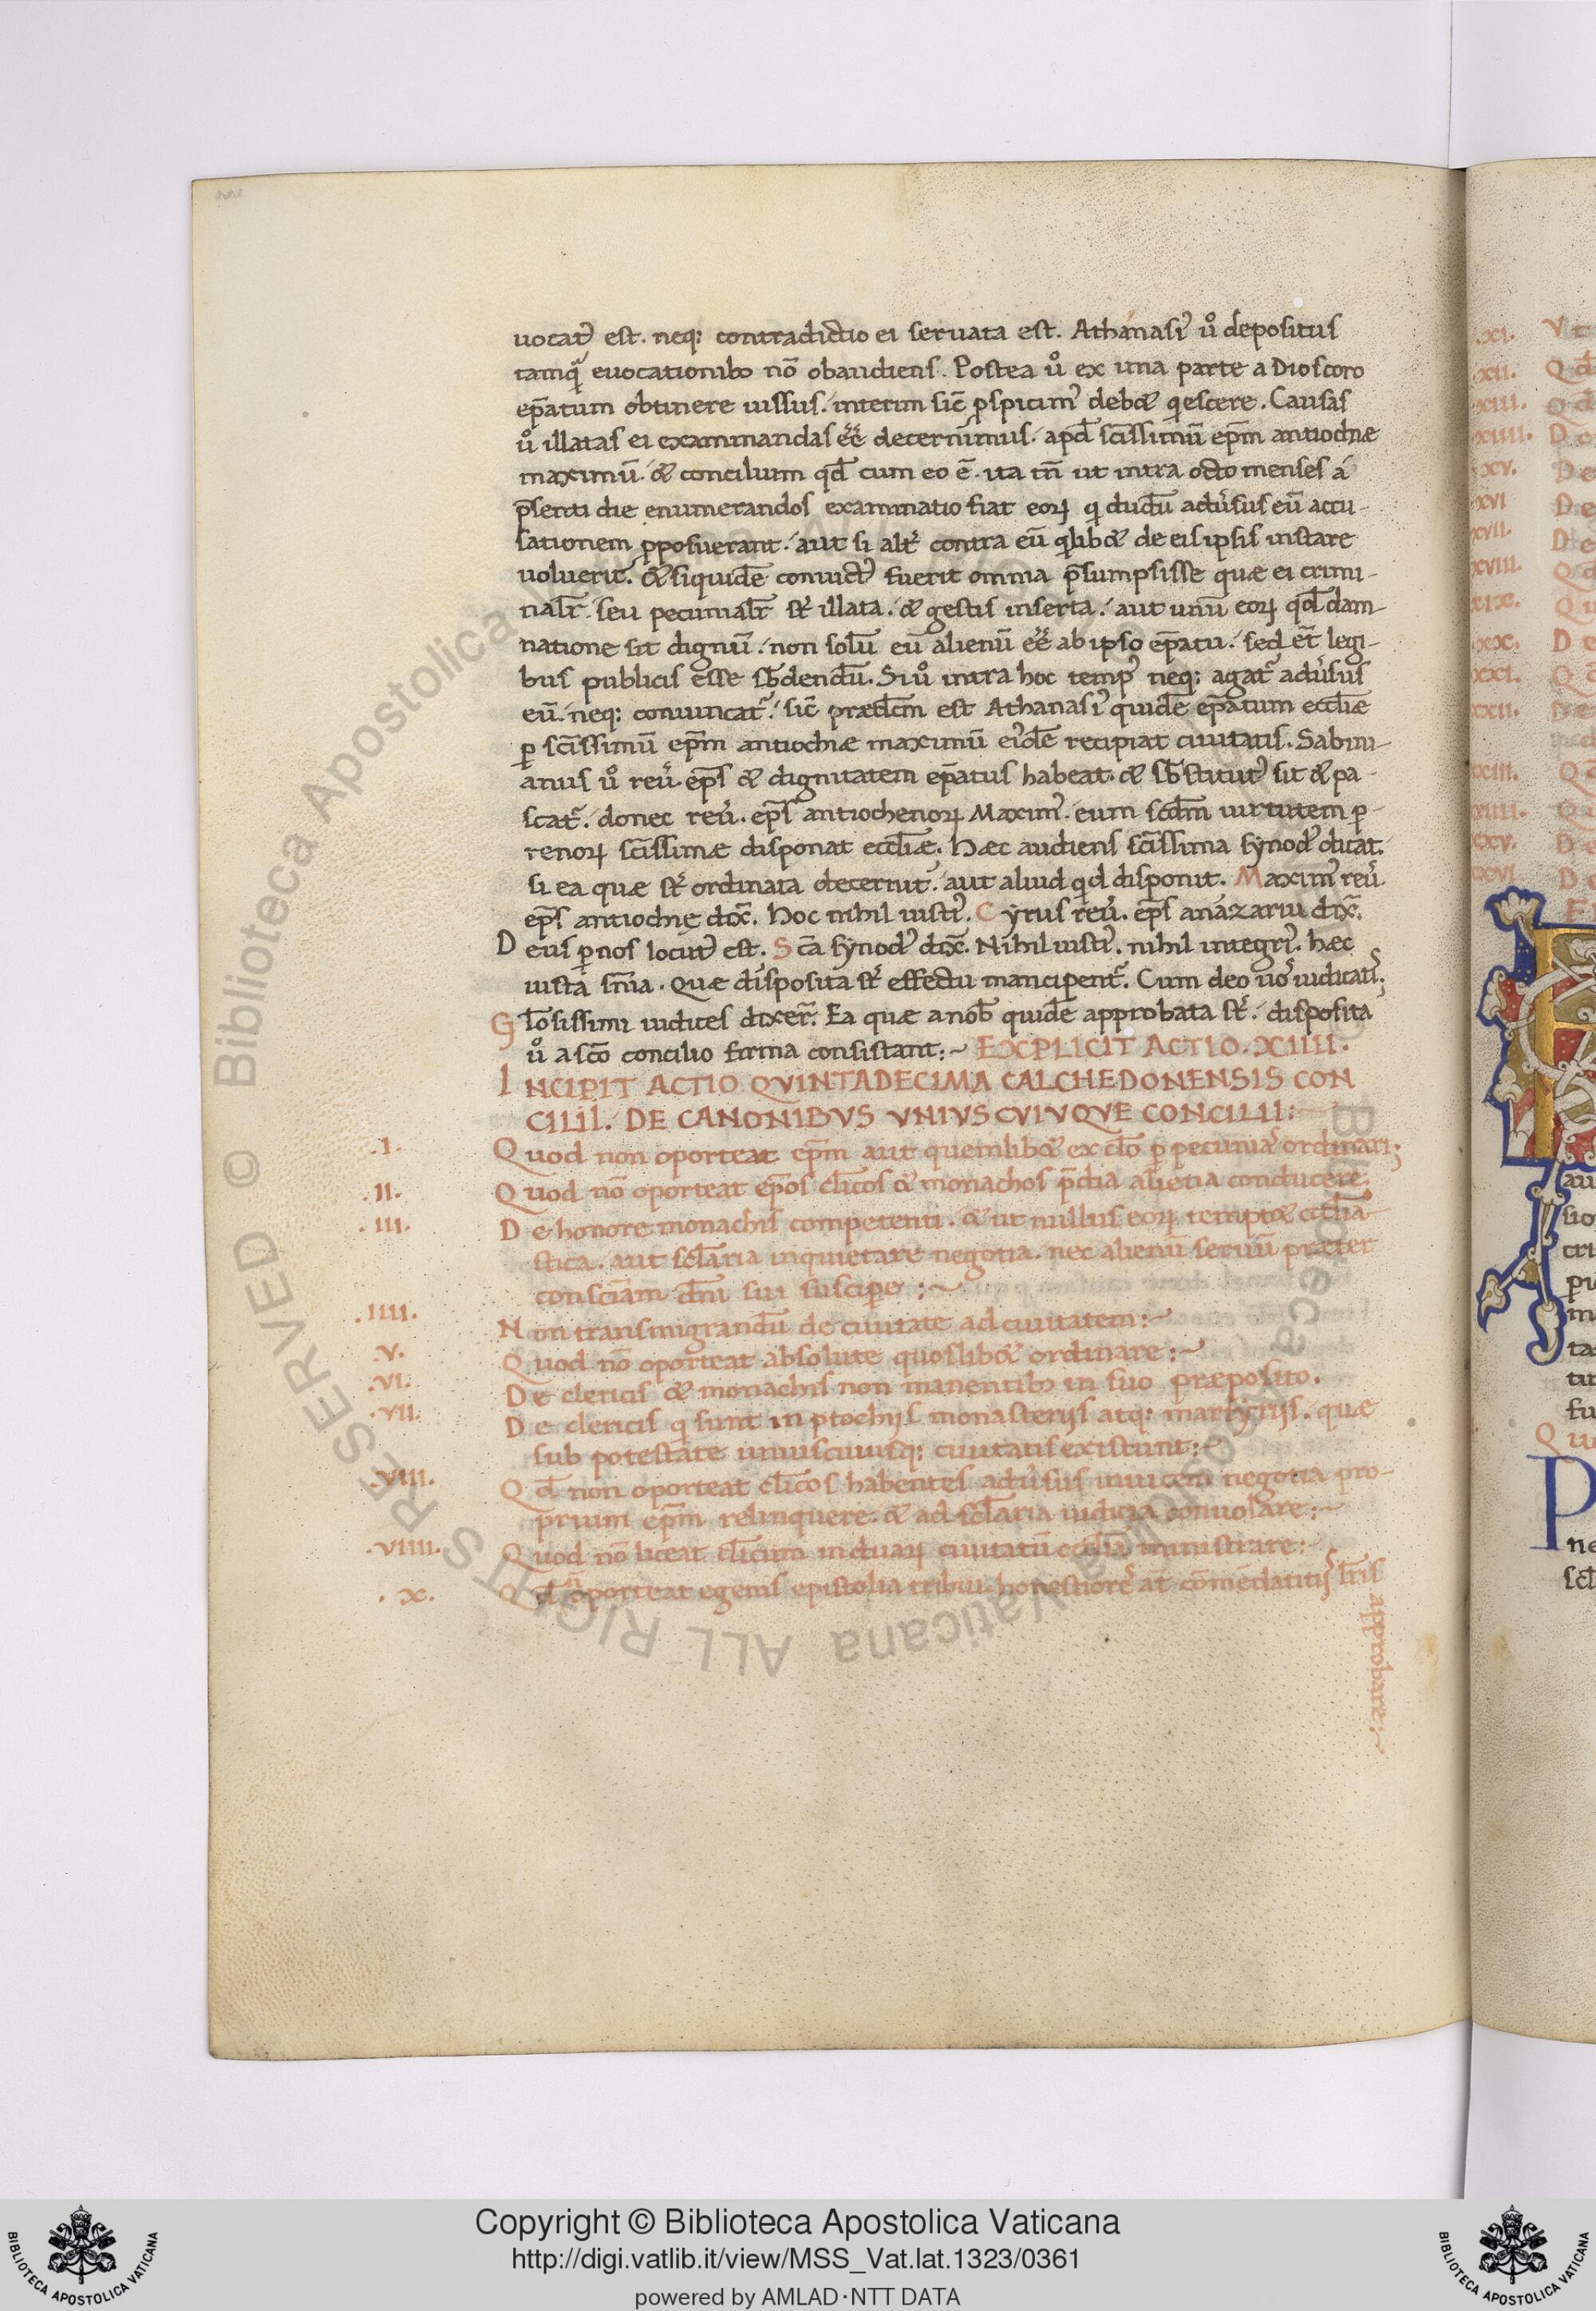 uocatꝰ est. neq; contradictio ei seruata est. Athanasiꝰ ů depositus
tamq̃ euocationibꝰ nõ obaudiens. Postea ů ex una parte a Dioscoro
ep̃atum obtinere iussus. interim sic̃ ꝓspicimꝰ deb& qiescere. Causas
ů illatas ei examinandas eẽ decernimus. apd̃ sc̃issimũ ep̃m antiochiæ
maximũ. & concilium qd̃ cum eo ẽ. ita tñ ut intra octo menses á
p̃senti die enumerandos examinatio fiat eoꝝ qi dudũ aduẽsus eũ accu-
sationem ꝓposuerant. aut si alt̃ contra eũ qilib& de eis ipsis instare
uoluerit. & siquidẽ conuictꝰ fuerit omnia p̃sumpsisse quæ ei crimi-
nalr̃. seu pecunialr̃ st̃ illata. & gestis inserta. aut unũ eoꝝ qd̃ dam-
natione sit dignũ. non solũ eũ alienũ eẽ ab ipso ep̃atu. sed et̃ legi-
bus publicis esse sb̃dendũ. Si ů intra hoc tempꝰ neq; agat̃ aduẽsus
eũ. neq; conuincat̃. sic̃ prædc̃m est Athanasiꝰ quidẽ ep̃atum eccl̃iæ
ꝑ sc̃issimũ ep̃m antiochiæ maximũ eiꝰdẽ recipiat ciuitatis. Sabini-
anus ů reũ. ep̃s & dignitatem ep̃atus habeat. & sb̃stitutꝰ sit & pa-
scat̃. donec reũ. ep̃s antiochenoꝝ Maximꝰ. eum scd̃m uirtutem ꝑ-
renoꝝ sc̃issimæ disponat eccl̃iæ. Hæc audiens sc̃issima synodꝰ dicat.
si ea quæ st̃ ordinata decernit. aut aliud qid disponit. Maximꝰ reũ.
ep̃s antiochię dix̃. Hoc nihil iustiꝰ. Cyrus reũ. ep̃s anázariu dix̃.
Deus ꝑ nos locutꝰ est. Sc̃a synodꝰ dix̃. Nihil iustiꝰ. nihil integriꝰ. hæc
iusta sñia. Quæ disposita st̃ effectu mancipent̃. Cum deo uoꝰ iudicatis;
Gl̃osissimi iudices dixer̃. Ea quæ a nob̃ quidẽ approbata st̃. disposita
ů a sc̃o concilio firma consistant:~ EXPLICIT ACTIO. XIIII.
INCIPIT ACTIO QVINTADECIMA CALCHEDONENSIS CON
CILII. DE CANONIBVS VNIVSCVIVQVE CONCILII:
.I. Quod non oporteat ep̃m aut quemlib& ex cl̃o ꝑ pecuniã ordinari;
.II. Quod nõ oporteat ep̃os cl̃icos & monachos p̃dia aliena conducere.
.III. De honore monachis competenti. & ut nullus eoꝝ tempt& eccl̃ia
stica. aut scl̃aria inquietare negotia. nec alienũ seruũ præter
consciam dñi sui suscipe :~
.IIII. Non transmigrandũ de ciuitate ad ciuitatem:~
.V. Quod nõ oporteat absolute quoslib& ordinare:~
.VI. De clericis & monachis non manentibꝰ in suo præposito.
.VII. De clericis qi sunt in ptochijs monasterijs atq; martyrijs. quæ
sub potestate uniuscuiusq; ciuitatis existunt:~
.VIII. Qd̃ non oporteat cl̃icos habentes aduẽsus inuicem negotia pro-
prium ep̃m relinquere. & ad scl̃aria iudicia conuolare:~
.VIIII. Quod nõ liceat cl̃icum in duaꝝ ciuitatũ eccl̃ia ministrare:
.X. Qd̃ oporteat egenis epistolia tribui. honestiorẽ at̃ cõmendatitijs lr̃is
approbare:~
.XI.
.XII.
.XIII.
.XIIII.
.XV.
XVI
XVII.
XVIII.
XIX.
XX.
XXI.
XXII.
XXIII.
XXIIII.
XXV.
XXVI
Copyright © Biblioteca Apostolica Vaticana
http://digi.vatlib.it/view/MSS_Vat.lat.1323/0361
powered by AMLAD·NTT DATA
BIBLIOTECA APOSTOLICA VATICANA
BIBLIOTECA APOSTOLICA VATICANA
© Biblioteca Apostolica Vaticana ALL RIGHTS RESERVED